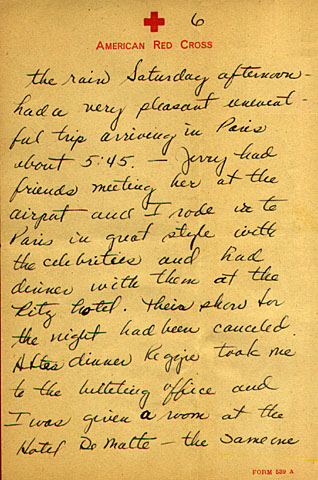 6
AMERICAN RED CROSS
the rain Saturday afternoon -
had a very pleasant unevent -
ful trip arriving in Paris
about 5:45. — Jerry had
friends meeting her at the
airport and I rode in to
Paris in great style with
the celebrities and had
dinner with them at the
Ritz Hotel. Their show for
the night had been canceled.
After dinner took me
to the billeting office and
I was given a room at the
Hotel De Malte — the same one
FORM 539 A